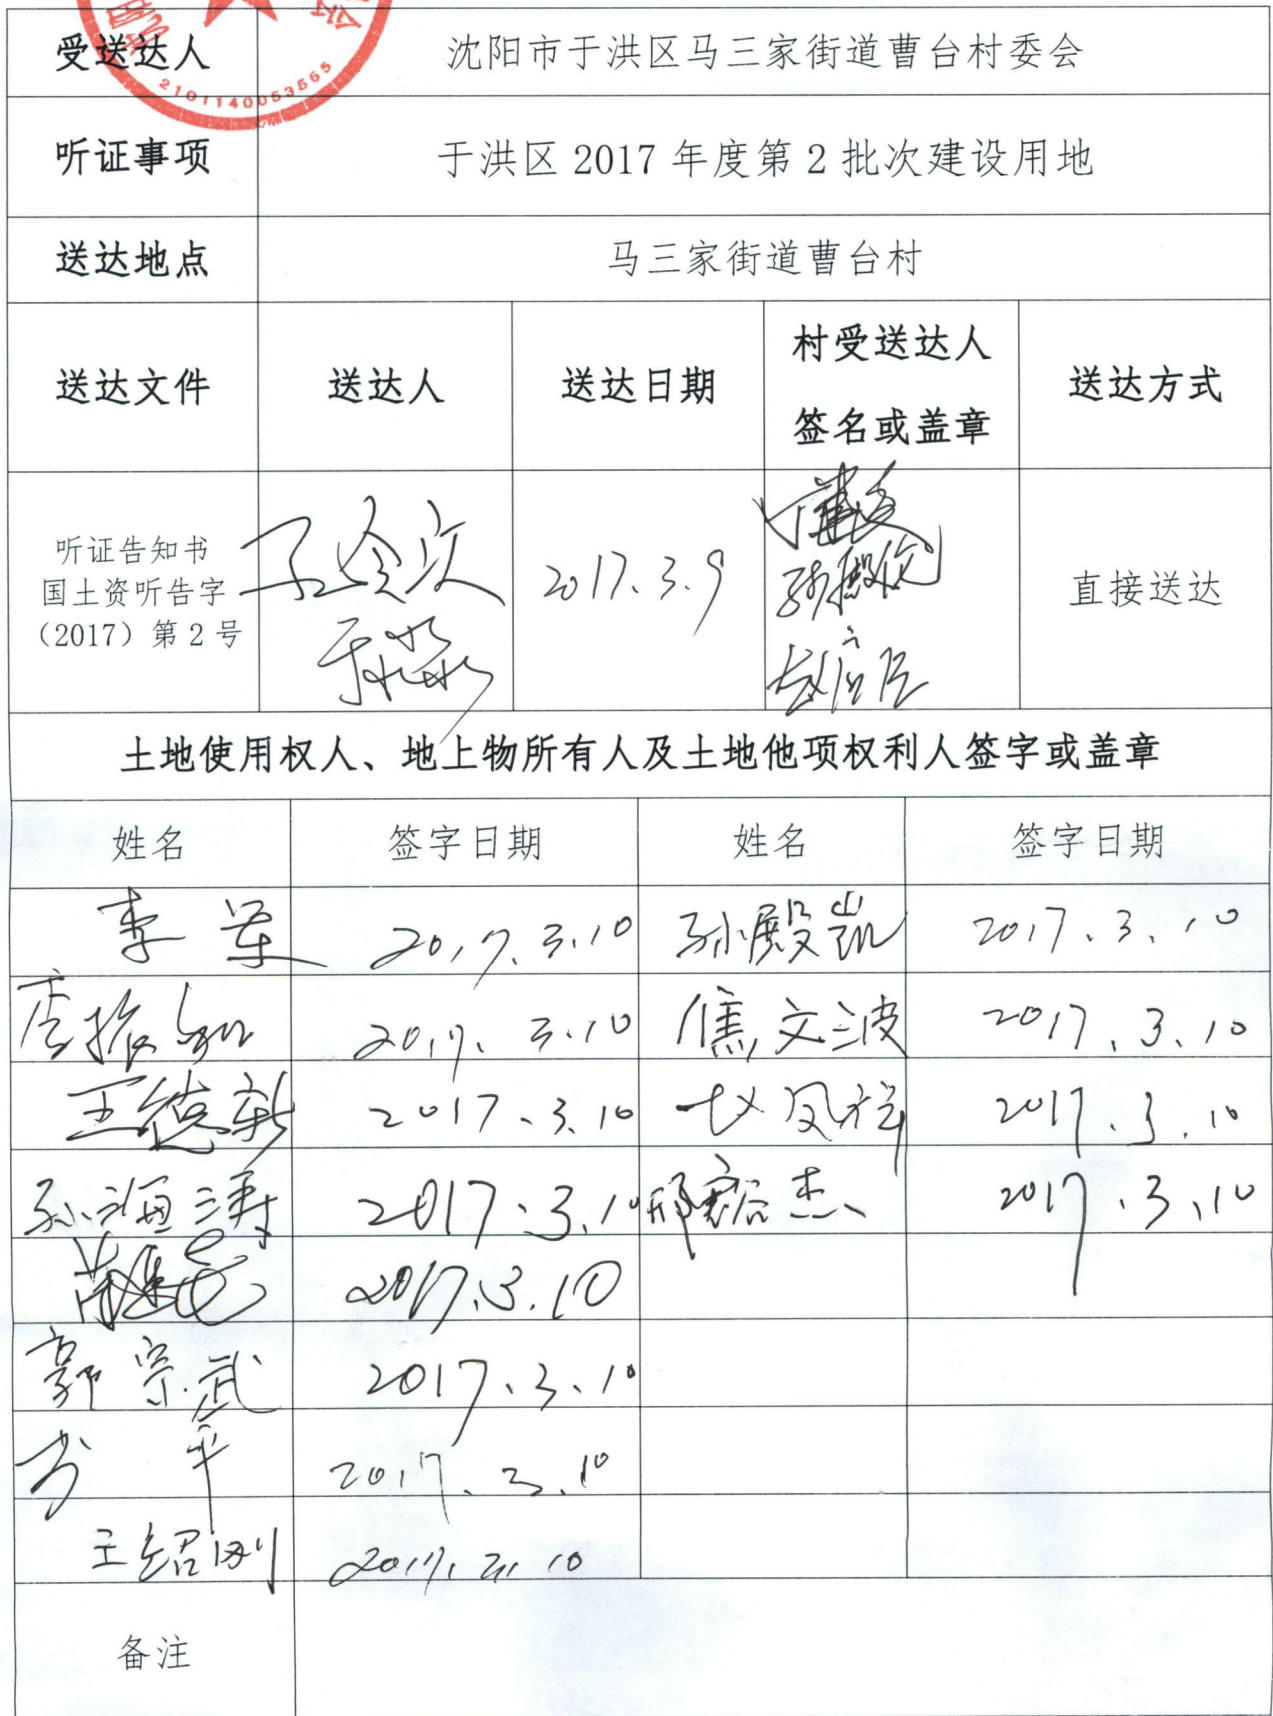 受送达人 沈阳市于洪区马三家街道曹台村委会
2101140053565
听证事项 于洪区 2017 年度第 2 批次建设用地
送达地点 马三家街道曹台村
送达文件 送达人 送达日期 村受送达人 签名或盖章 送达方式
听证告知书
国土资听告字
（2017）第 2 号
2017.3.9
直接送达
土地使用权人、地上物所有人及土地他项权利人签字或盖章
姓名 签字日期 姓名 签字日期
李 2017.3.10 孙殿凯 2017.3.10
2017.3.10 焦文波 2017.3.10
王德新 2017.3.10 赵凤祥 2017.3.10
孙海涛 2017.3.10 邢杰 2017.3.10
2017.3.10
郭宗武 2017.3.10
平 2017.3.10
王绍刚 2017.3.10
备注